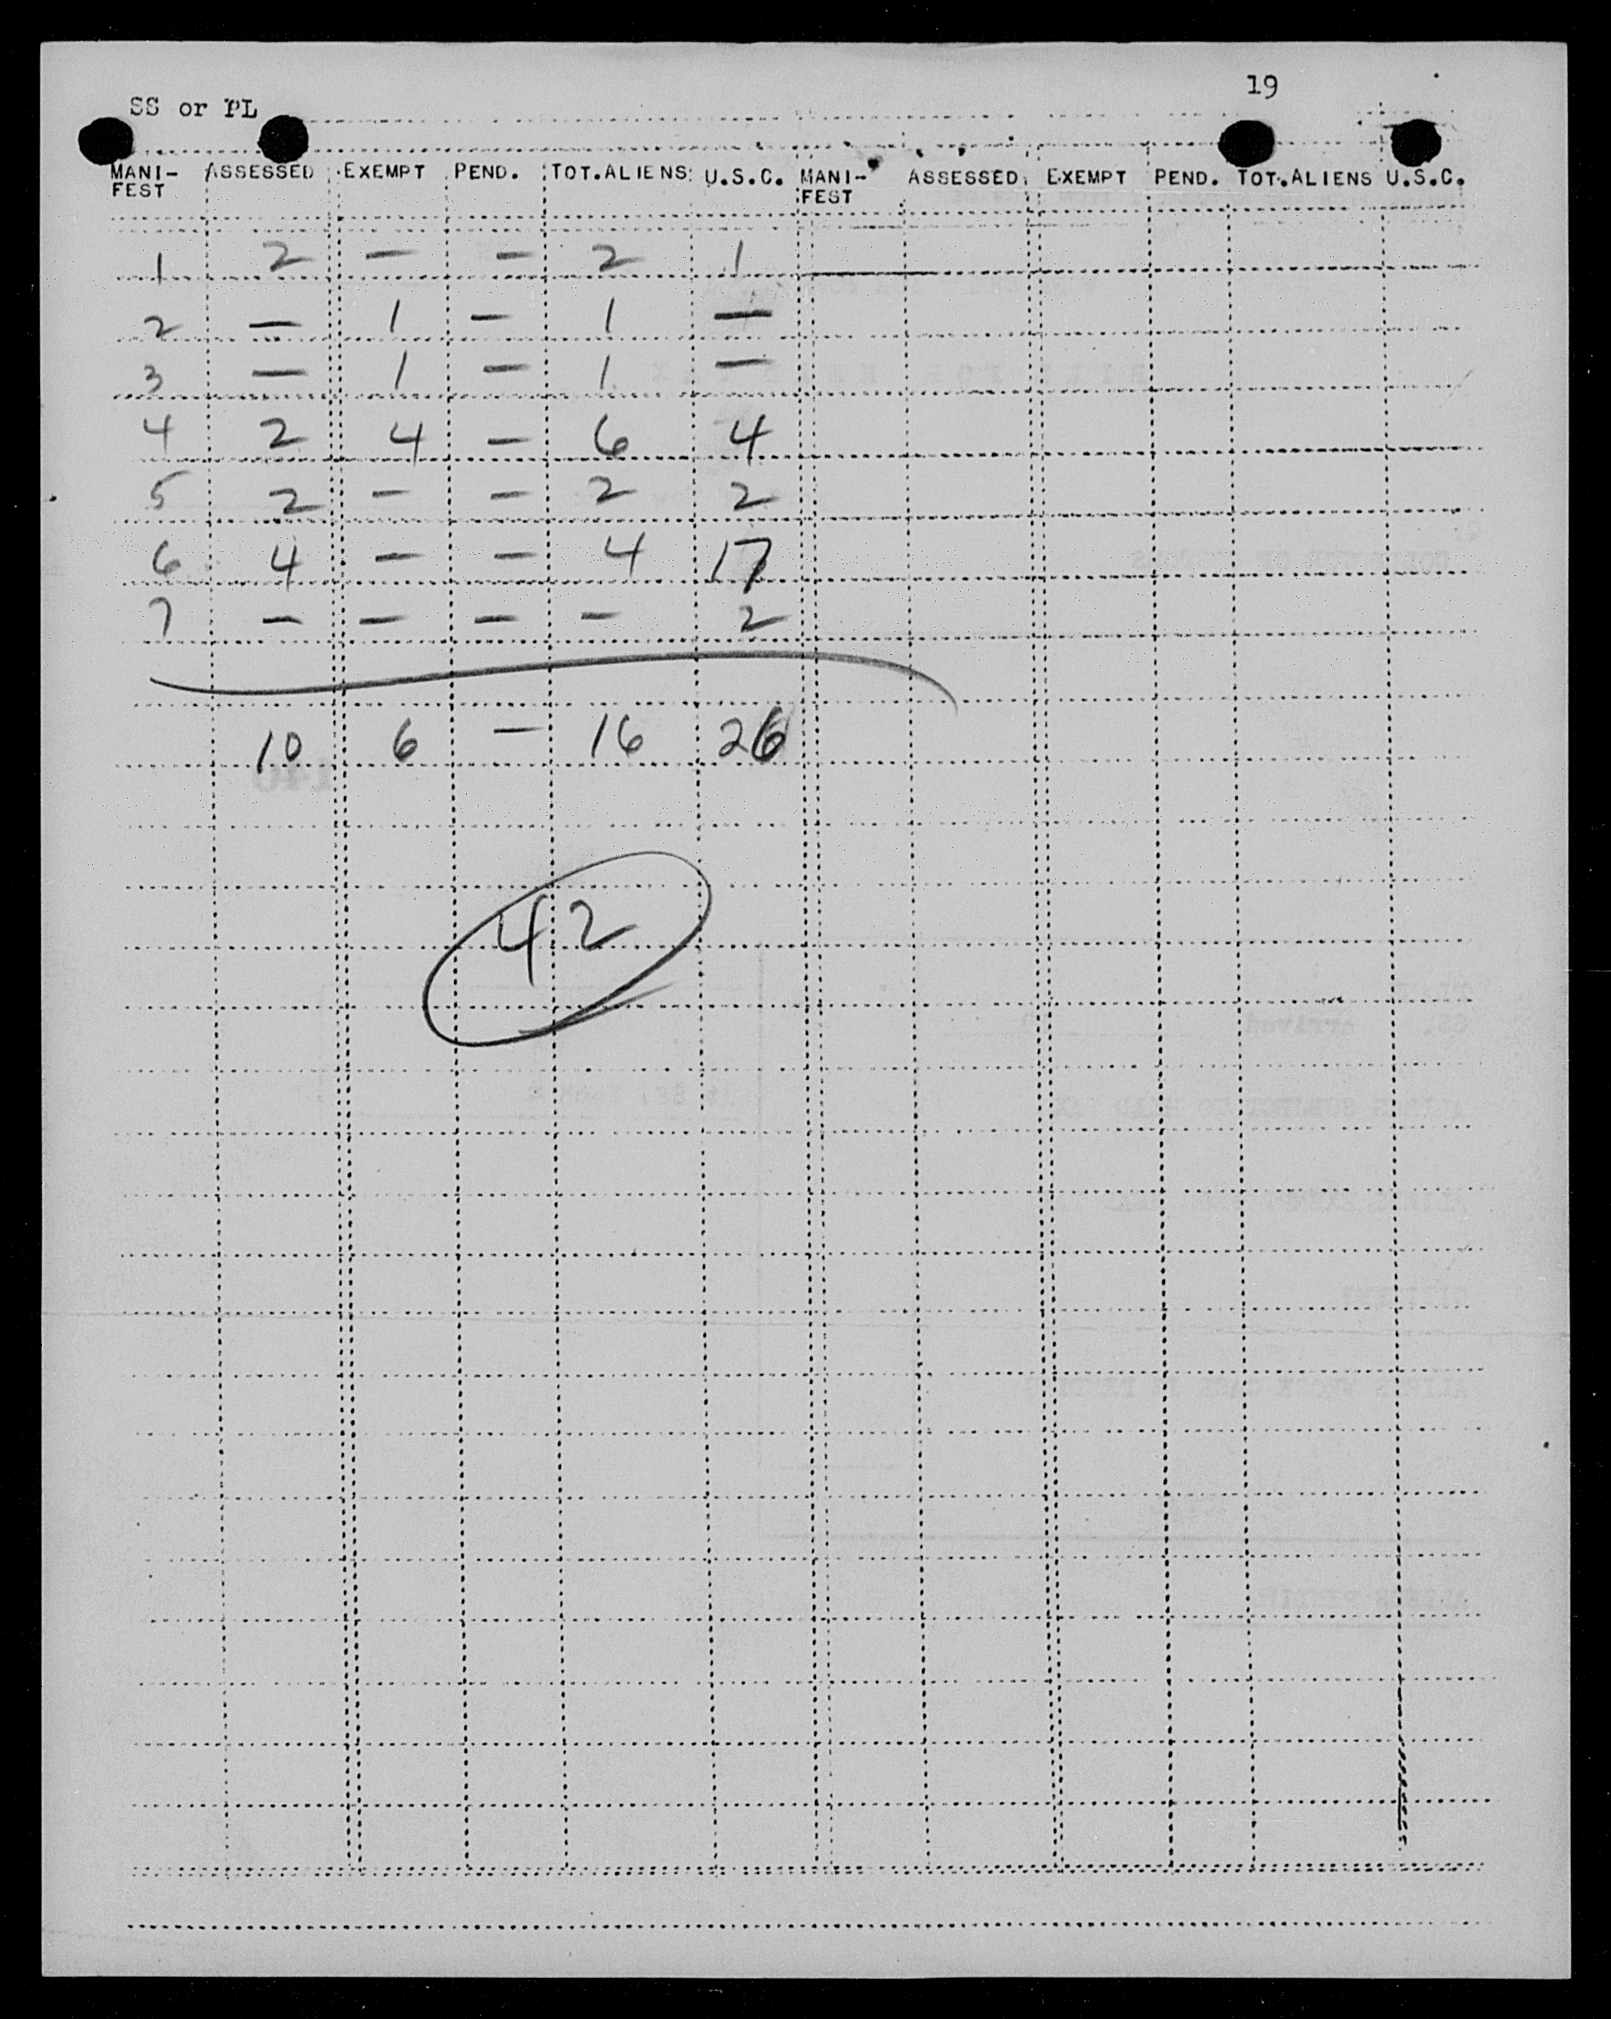 19
SS or PL
MANI-FEST ASSESSED EXEMPT PEND. TOT.ALIENS U.S.C. MANI-FEST ASSESSED EXEMPT PEND. TOT.ALIENS U.S.C.
1 2 — — 2 1
2 — 1 — 1 —
3 — 1 — 1 —
4 2 4 — 6 4
5 2 — — 2 2
6 4 — — 4 17
7 — — — — 2
10 6 — 16 26
42